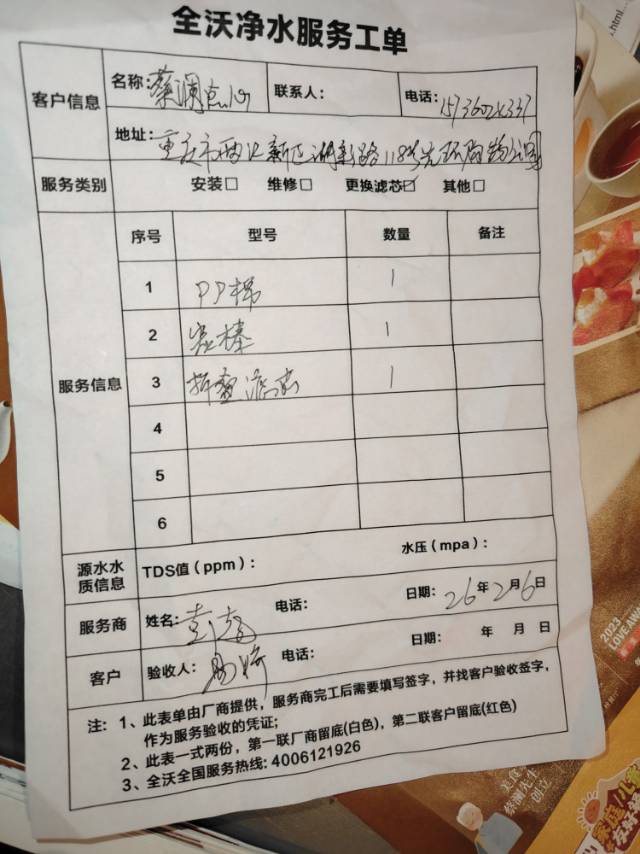 全沃净水服务工单
客户信息
名称 蔡澜点心 联系人： 电话：
地址： 重庆市两江新区湖彩路118号
服务类别 安装□ 维修□ 更换滤芯☑ 其他□
服务信息
序号 型号 数量 备注
1 PP棉 1
2 炭棒 1
3 折叠滤芯 1
4
5
6
源水水质信息 TDS值（ppm）： 水压（mpa）：
服务商 姓名： 电话： 日期： 26年2月6日
客户 验收人： 电话： 日期： 年 月 日
注：1、此表单由厂商提供，服务商完工后需要填写签字，并找客户验收签字，
作为服务验收的凭证；
2、此表一式两份，第一联厂商留底(白色)，第二联客户留底(红色)
3、全沃全国服务热线: 4006121926
2023
LOVE AW
美食
蔡澜先生
创立
html